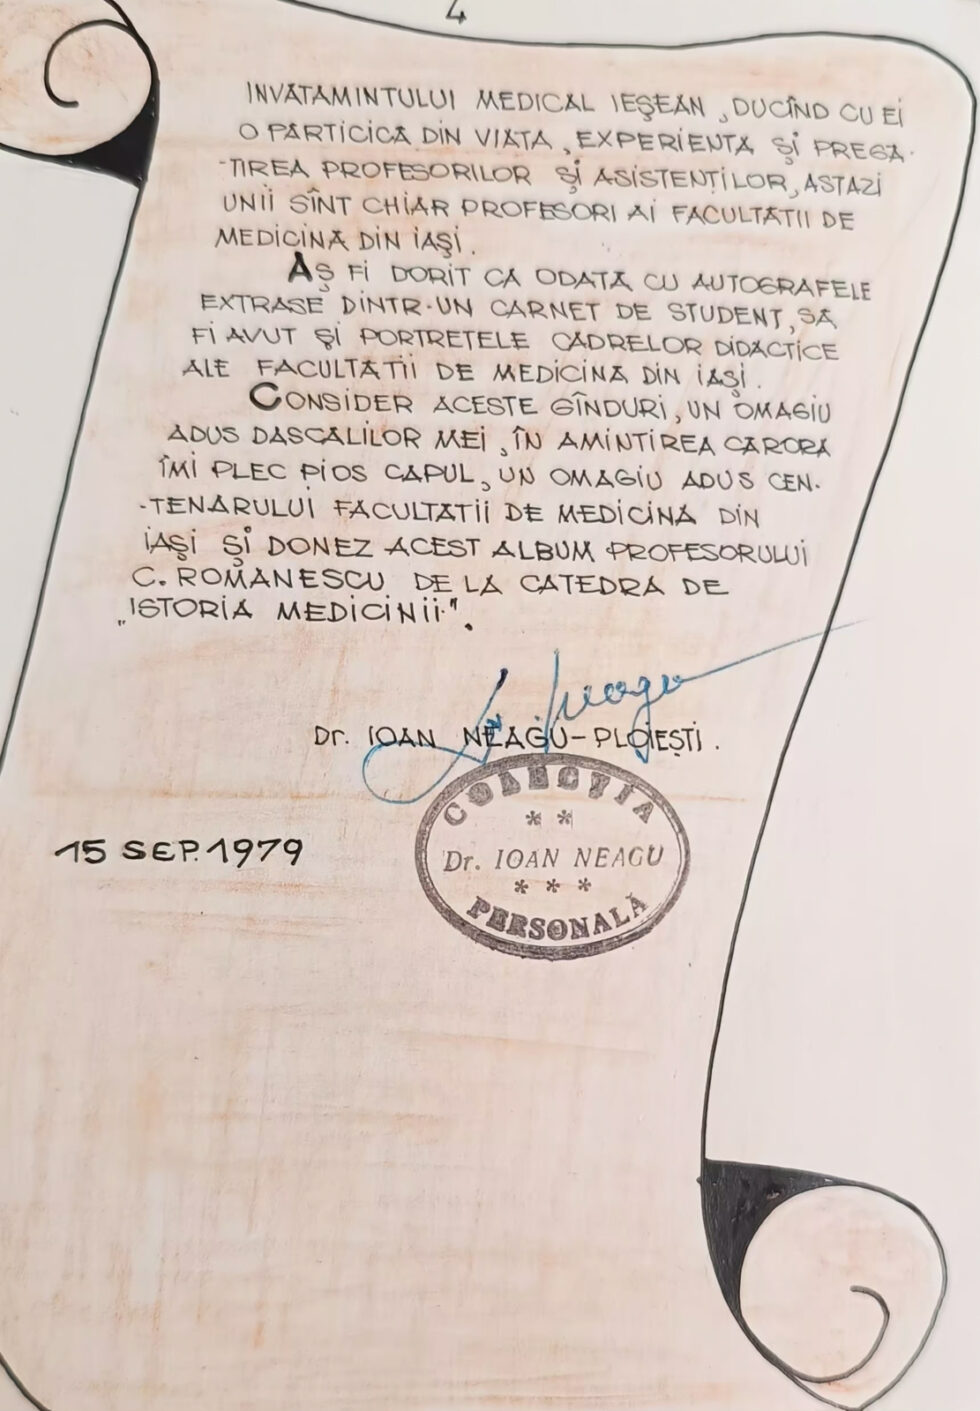 4
INVATAMINTULUI MEDICAL IEŞEAN, DUCÎND CU EI
O PARTICICA DIN VIATA, EXPERIENTA ŞI PREGA-
-TIREA PROFESORILOR ŞI ASISTENTILOR, ASTAZI
UNII SÎNT CHIAR PROFESORI AI FACULTATII DE
MEDICINA DIN IAŞI.
AŞ FI DORIT CA ODATA CU AUTOGRAFELE
EXTRASE DINTR-UN CARNET DE STUDENT, SA
FI AVUT ŞI PORTRETELE CADRELOR DIDACTICE
ALE FACULTATII DE MEDICINA DIN IAŞI.
CONSIDER ACESTE GÎNDURI, UN OMAGIU
ADUS DASCALILOR MEI, ÎN AMINTIREA CARORA
ÎMI PLEC PIOS CAPUL, UN OMAGIU ADUS CEN-
-TENARULUI FACULTATII DE MEDICINA DIN
IAŞI ŞI DONEZ ACEST ALBUM PROFESORULUI
C. ROMANESCU DE LA CATEDRA DE
„ISTORIA MEDICINII".
Dr. IOAN NEAGU-PLOIEŞTI.
COLECŢIA
* *
Dr. IOAN NEAGU
* * *
PERSONALĂ
15 SEP. 1979